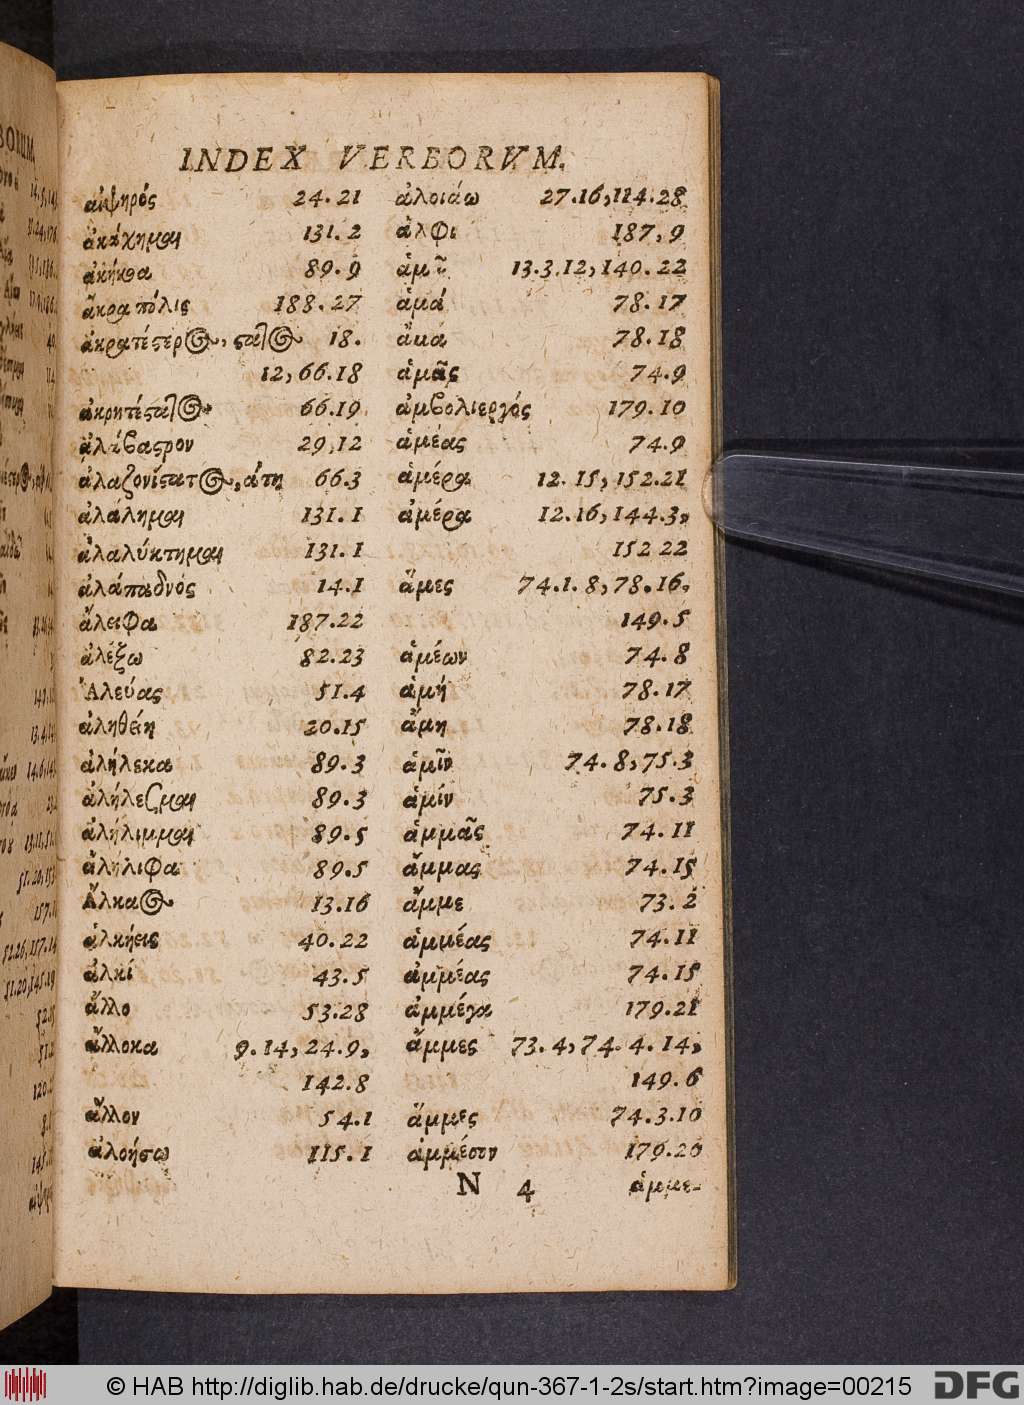 INDEX VERBORVM.
αἰψηρός 24.21
ἀκάχημαι 131.2
ἀκήκοα 89.9
ἄκρα πόλις 188.27
ἀκρατέςερος, ςατος 18.
12, 66.18
ἀκρητέςατος 66.19
ἀλάβαςρον 29,12
ἀλαζονίςατος, άτη 66.3
ἀλάλημαι 131.1
ἀλαλύκτημαι 131.1
ἀλάπαδνός 14.1
ἄλειφα 187.22
ἀλέξω 82.23
Ἀλεύας 51.4
ἀληθείη 20.15
ἀλήλεκα 89.3
ἀλήλεσμαι 89.3
ἀλήλιμμαι 89.5
ἀλήλιφα 89.5
Ἄλκαος 13.16
ἀλκήεις 40.22
ἀλκί 43.5
ἄλλο 53.28
ἄλλοκα 9.14, 24.9,
142.8
ἄλλον 54.1
ἀλοήσω 115.1
ἀλοιάω 27.16, 114.28
ἄλφι 187,9
ἁμῦ 13.3.12, 140.22
ἁμά 78.17
ἄμα 78.18
ἁμᾶς 74.9
ἀμβολιεργός 179.10
ἁμέας 74.9
ἁμέρα 12.15, 152.21
ἀμέρα 12.16, 144.3,
152 22
ἅμες 74.1.8, 78.16,
149.5
ἁμέων 74.8
ἁμή 78.17
ἄμη 78.18
ἁμῖν 74.8, 75.3
ἁμίν 75.3
ἁμμᾶς 74.11
ἄμμας 74.15
ἄμμε 73.2
ἁμμέας 74.11
ἀμμέας 74.15
ἀμμέγα 179.21
ἄμμες 73.4, 74.4.14,
149.6
ἅμμες 74.3.10
ἀμμέσον 179.20
N 4 ἁμμε-
© HAB http://diglib.hab.de/drucke/qun-367-1-2s/start.htm?image=00215 DFG